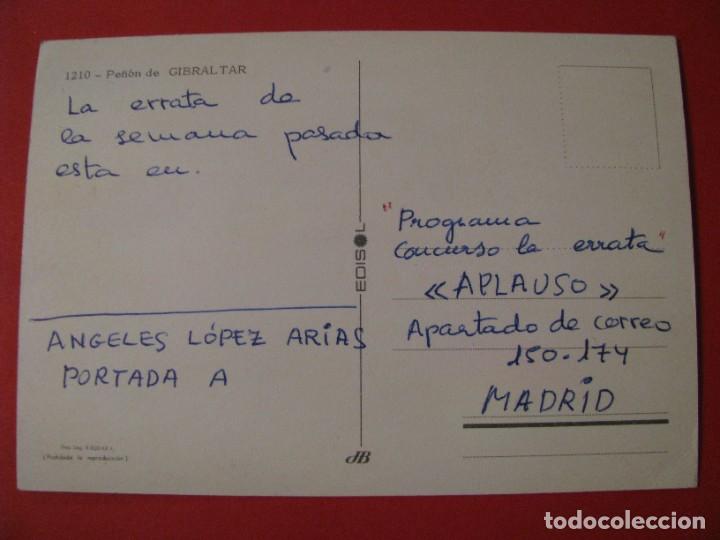 1210 - Peñón de GIBRALTAR
La errata de
la semana pasada
esta en.
ANGELES LÓPEZ ARIAS
PORTADA A
(Prohibida la reproducción)
EDISOL
JB
"Programa
Concurso la errata"
« APLAUSO »
Apartado de correo
150.174
MADRID
todocoleccion